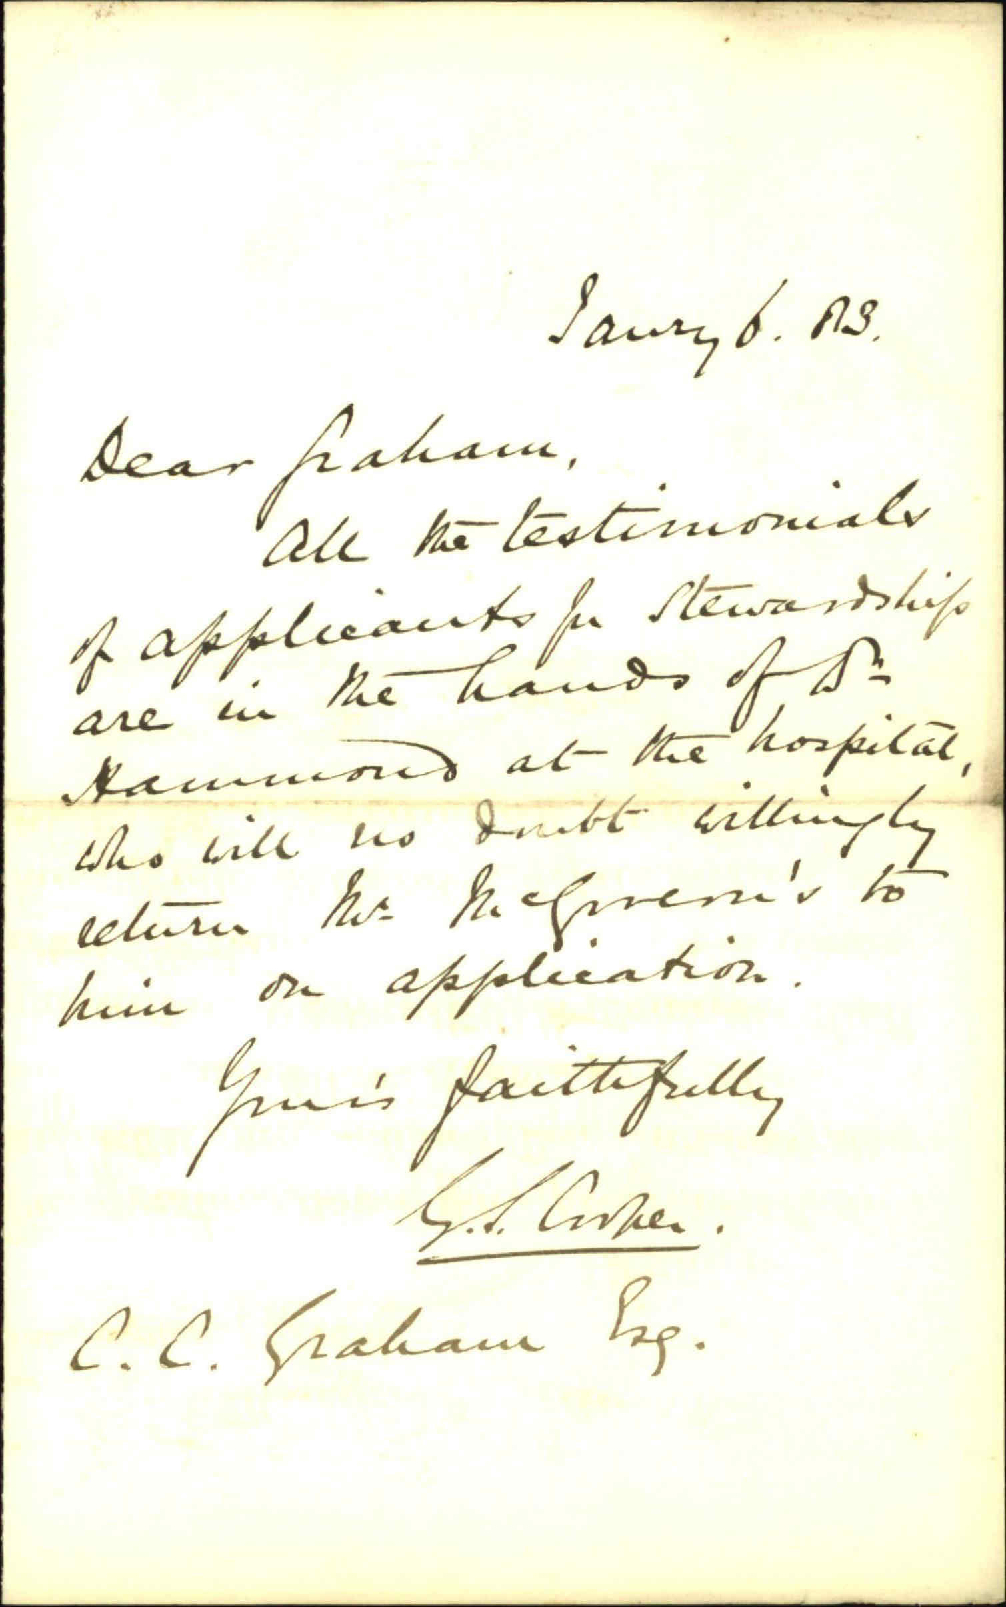 Janry 6. 83.
Dear Graham,
All the testimonials
of applicants for Stewardship
are in the hands of Dr
Hammond at the hospital,
who will no doubt willingly
return Mr McGovern's to
him on application.
Your's faithfully
G.S. Cooper.
C. C. Graham Esq.